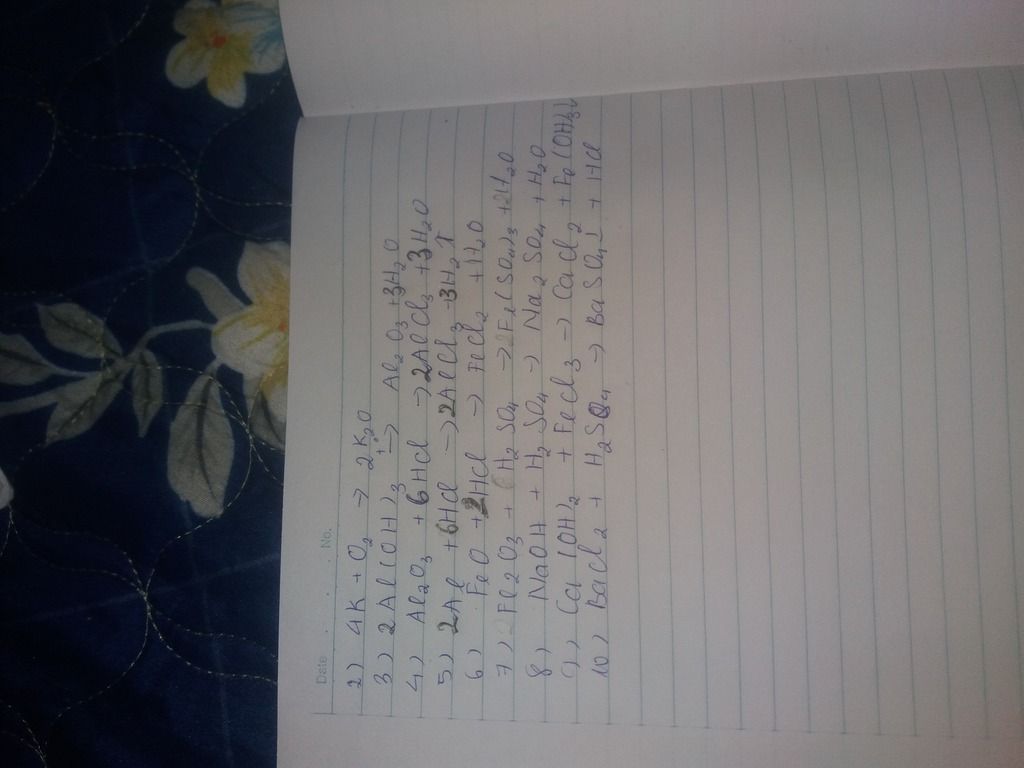 Date . . No.
2) 4K + O2 → 2K2O
3) 2Al(OH)3 t°→ Al2O3 + 3H2O
4) Al2O3 + 6HCl → 2AlCl3 + 3H2O
5) 2Al + 6HCl → 2AlCl3 + 3H2↑
6) FeO + 2HCl → FeCl2 + H2O
7) 2Fe2O3 + 6H2SO4 → 2Fe2(SO4)3 + 2H2O
8) NaOH + H2SO4 → Na2SO4 + H2O
9) Ca(OH)2 + FeCl3 → CaCl2 + Fe(OH)3↓
10) BaCl2 + H2SO4 → BaSO4↓ + HCl